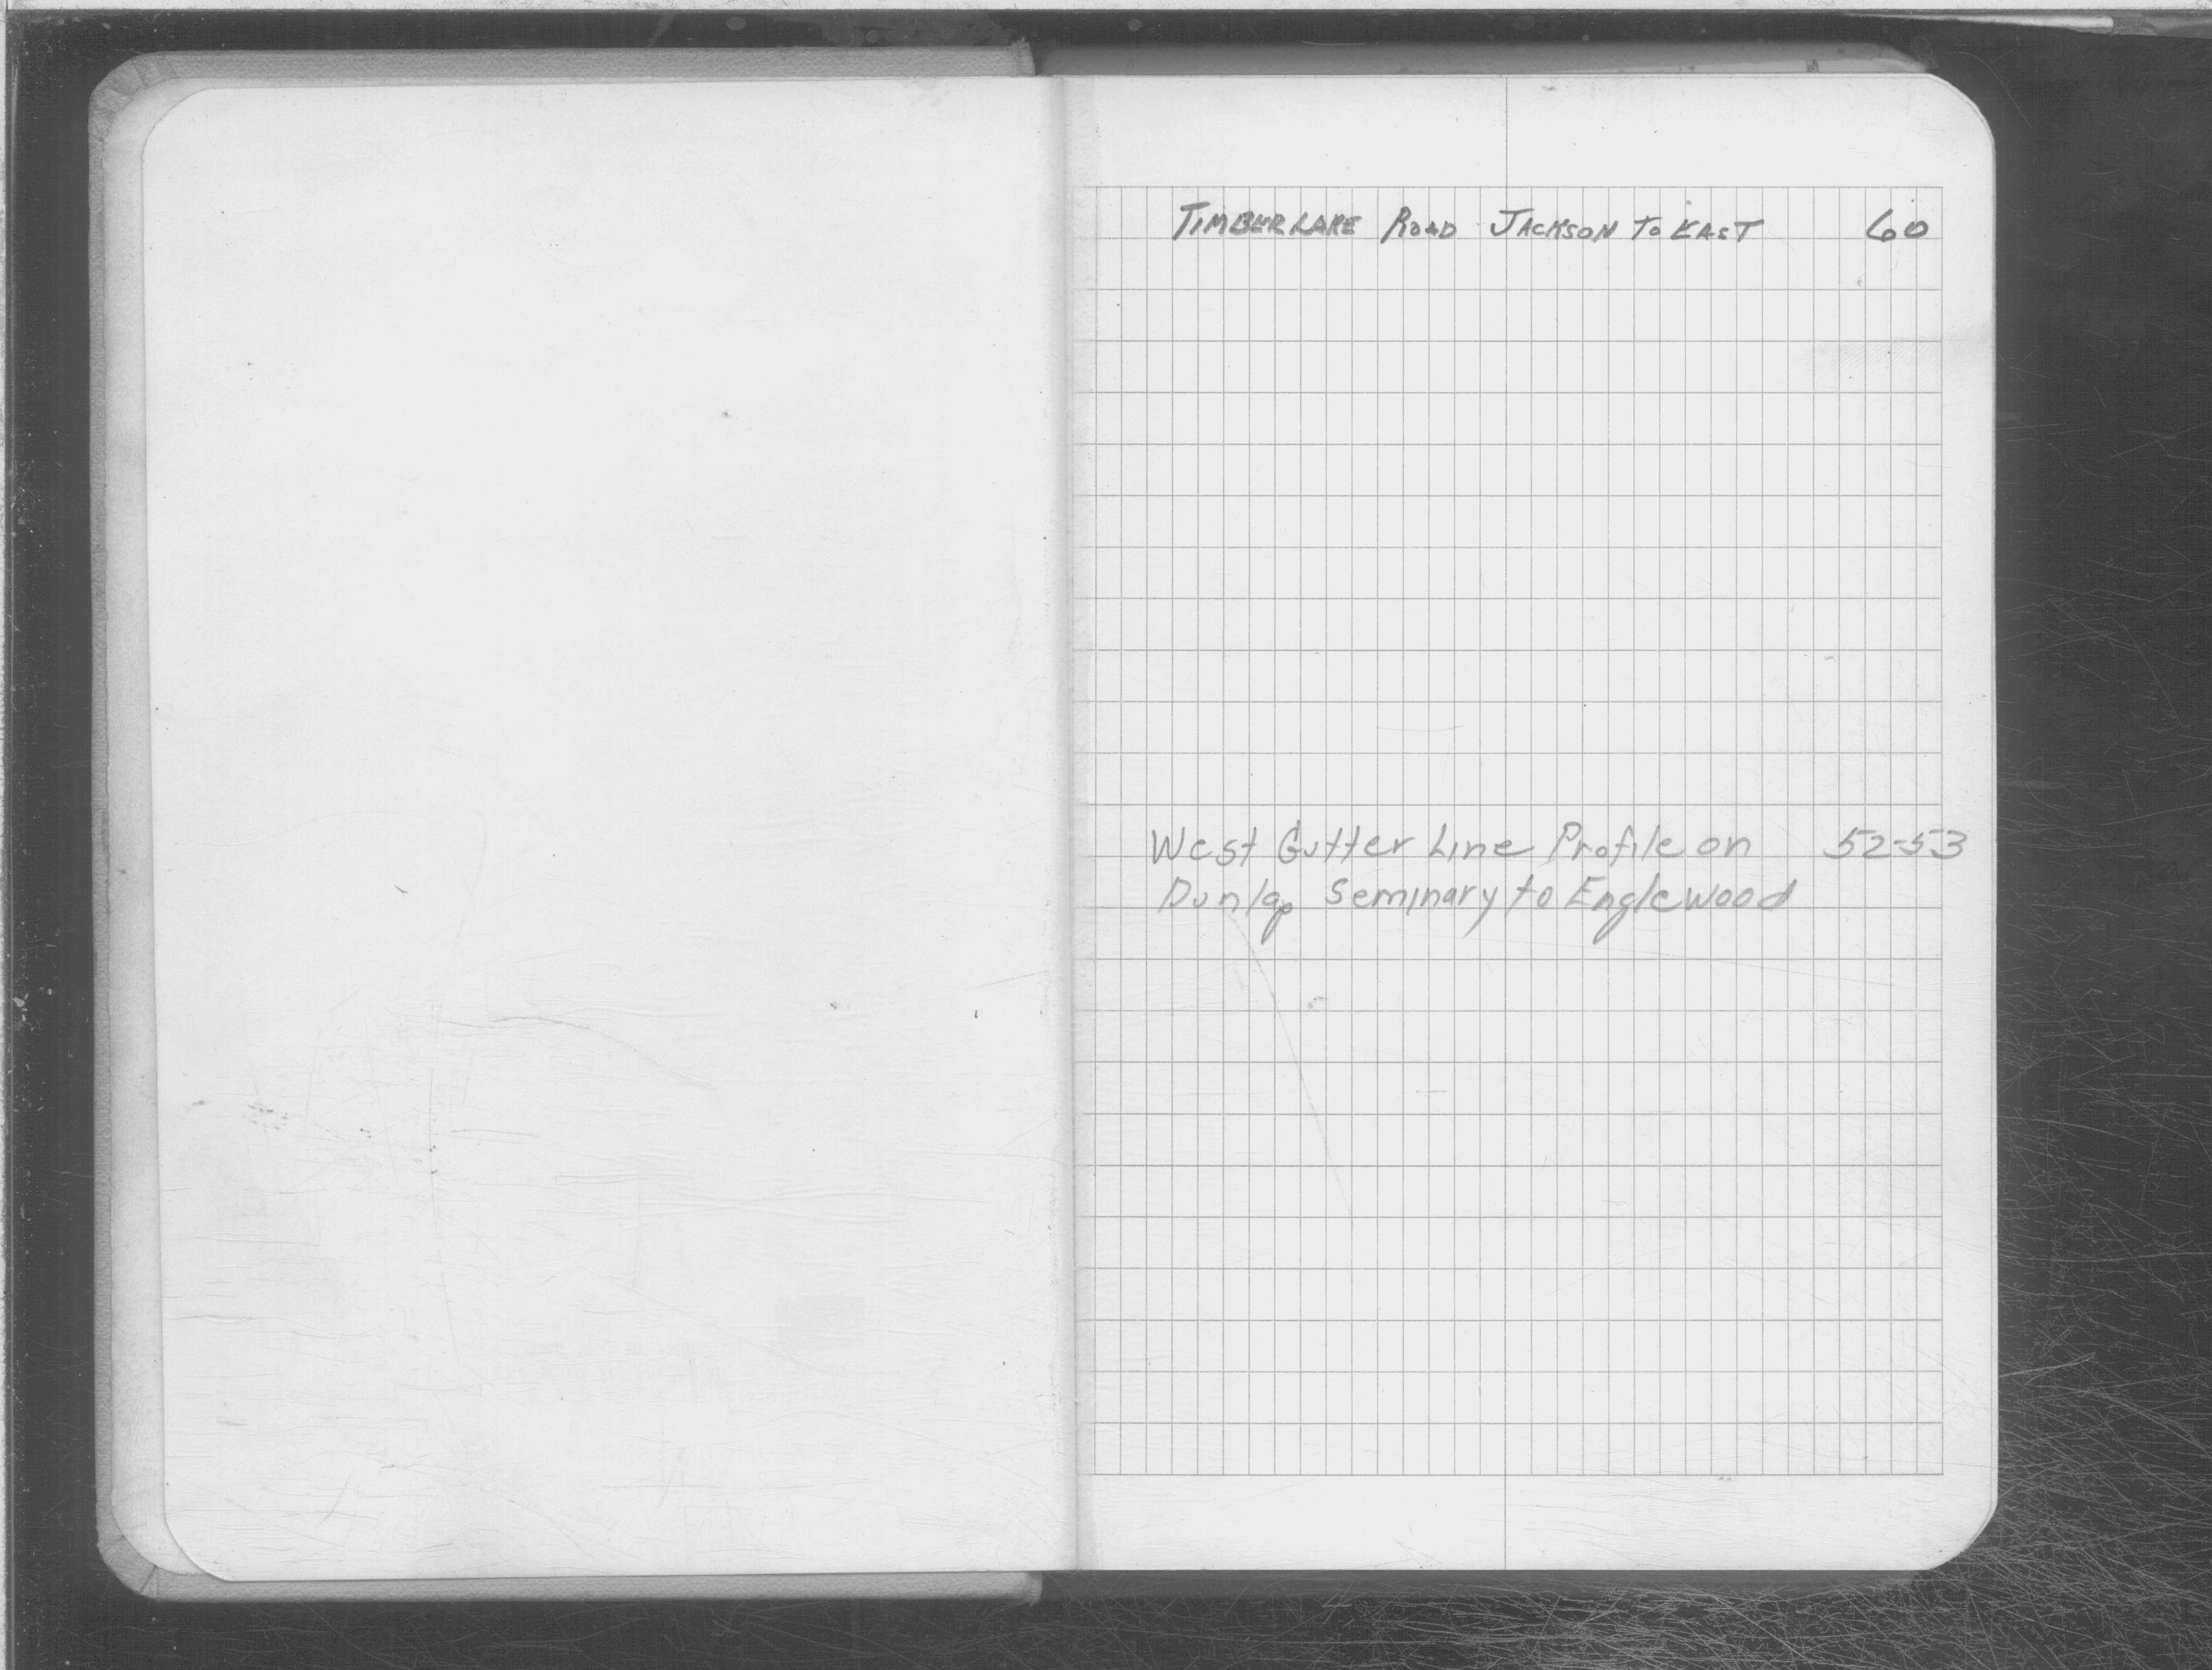 TIMBERLAKE ROAD JACKSON TO EAST 60
West Gutter Line Profile on 52-53
Dunlap Seminary to Englewood